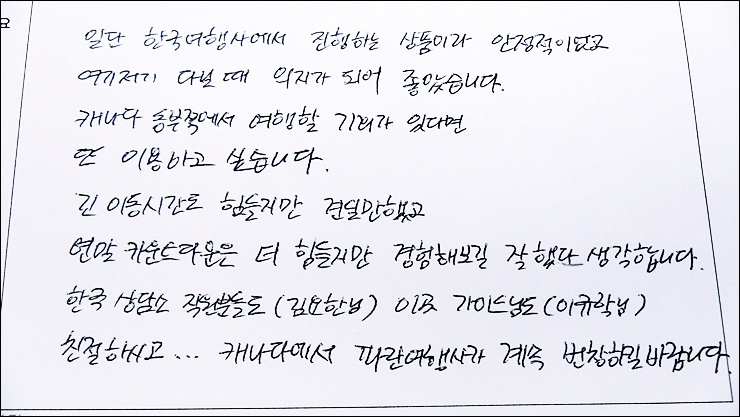 요
일단 한국여행사에서 진행하는 상품이라 안정적이었고
여기저기 다닐 때 의지가 되어 좋았습니다.
캐나다 동부쪽에서 여행할 기회가 있다면
또 이용하고 싶습니다.
긴 이동시간도 힘들지만 견딜만했고
연말 카운트다운은 더 힘들지만 경험해보길 잘 했다 생각합니다.
한국 상담소 직원분들도 (김요한님) 이곳 가이드님도 (이규락님)
친절하시고... 캐나다에서 파란여행사가 계속 번창하길 바랍니다.